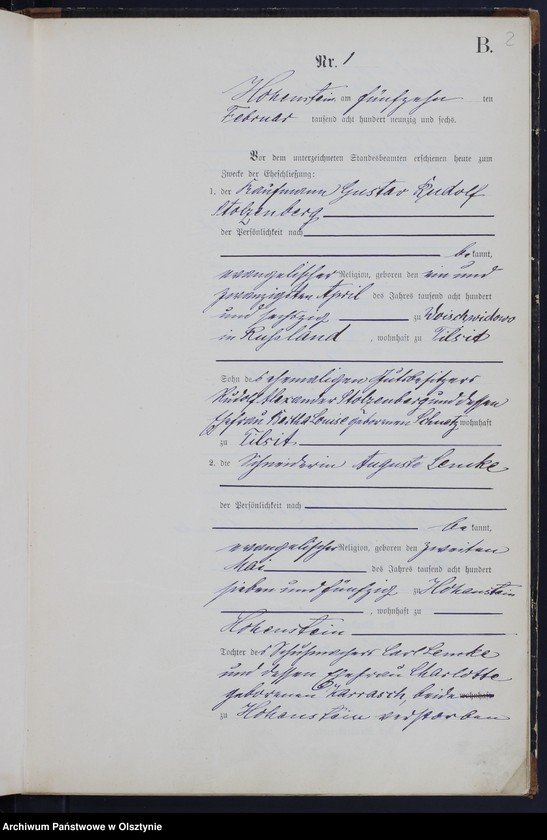 B. 2
Nr. 1
Hohenstein am fünfzehn ten
Februar tausend acht hundert neunzig und sechs.
Vor dem unterzeichneten Standesbeamten erschienen heute zum
Zwecke der Eheschließung:
1. der Kaufmann Gustav Rudolf
Stolzenberg
der Persönlichkeit nach
bekannt,
evangelischer Religion, geboren den ein und
zwanzigsten April des Jahres tausend acht hundert
und sechszig zu Woischwidowo
in Rußland, wohnhaft zu Tilsit
Sohn des ehemaligen Gutsbesitzers
Rudolf Alexander Stolzenberg und dessen
Ehefrau Bertha Louise geborenen wohnhaft
zu Tilsit
2. die Schneiderin Auguste Lemke
der Persönlichkeit nach
bekannt,
evangelischer Religion, geboren den zweiten
Mai des Jahres tausend acht hundert
sieben und fünfzig zu Hohenstein
, wohnhaft zu
Hohenstein
Tochter des Schuhmachers Carl Lemke
und dessen Ehefrau Charlotte
geborenen Karrasch, beide wohnhaft
zu Hohenstein verstorben
Archiwum Państwowe w Olsztynie